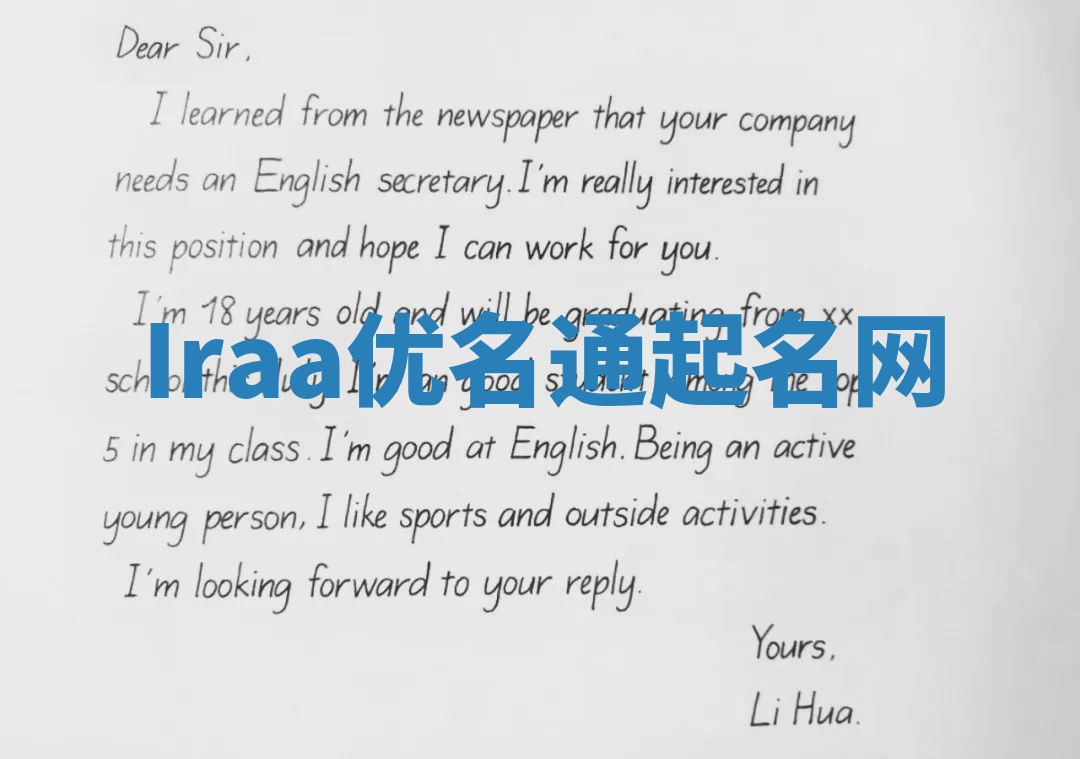 Dear Sir,
I learned from the newspaper that your company
needs an English secretary. I'm really interested in
this position and hope I can work for you.
I'm 18 years old and will be graduating from xx
school this July. I'm an good student among the top
5 in my class. I'm good at English. Being an active
young person, I like sports and outside activities.
I'm looking forward to your reply.
Yours,
Li Hua.
Iraa优名通起名网